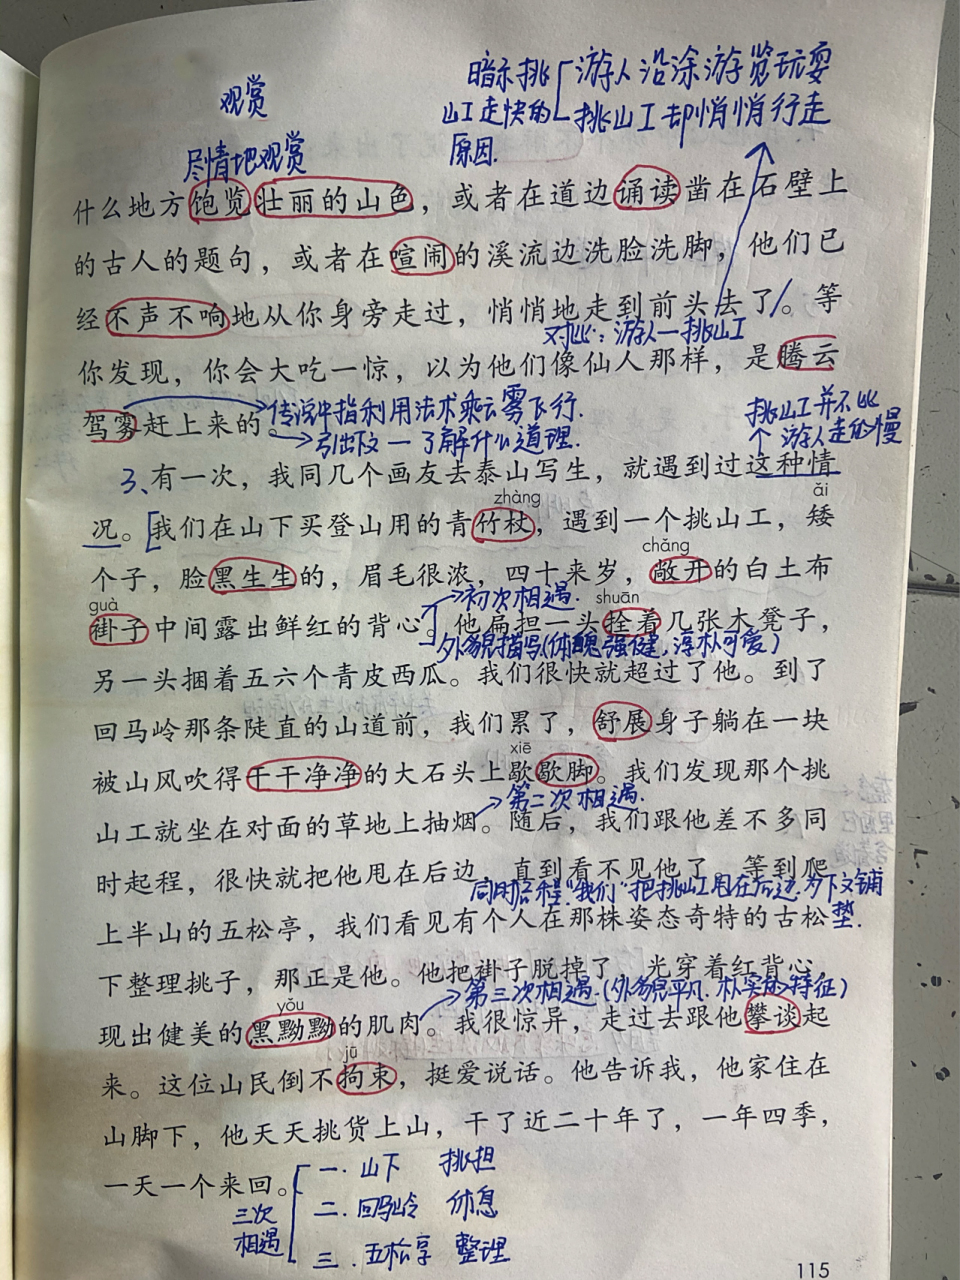 观赏
暗示挑 游人沿涂游览玩耍
山工走快的 挑山工却悄悄行走
原因.
尽情地观赏
什么地方饱览壮丽的山色，或者在道边诵读凿在石壁上
的古人的题句，或者在喧闹的溪流边洗脸洗脚，他们已
经不声不响地从你身旁走过，悄悄地走到前头去了。等
对比：游人—挑山工
你发现，你会大吃一惊，以为他们像仙人那样，是腾云
驾雾赶上来的。
传说中指利用法术乘云雾飞行.
引出下文—了解什么道理.
挑山工并不比
游人走的慢
3、有一次，我同几个画友去泰山写生，就遇到过这种情
zhàng ǎi
况。我们在山下买登山用的青竹杖，遇到一个挑山工，矮
chǎng
个子，脸黑生生的，眉毛很浓，四十来岁，敞开的白土布
guà 初次相遇. shuān
褂子中间露出鲜红的背心。他扁担一头拴着几张木凳子，
外貌描写(体魄强健，淳朴可爱)
另一头捆着五六个青皮西瓜。我们很快就超过了他。到了
回马岭那条陡直的山道前，我们累了，舒展身子躺在一块
xiē
被山风吹得干干净净的大石头上歇歇脚。我们发现那个挑
第二次相遇.
山工就坐在对面的草地上抽烟。随后，我们跟他差不多同
时起程，很快就把他甩在后边，直到看不见他了。等到爬
同时启程"我们"把挑山工甩在后边.为下文铺
垫.
上半山的五松亭，我们看见有个人在那株姿态奇特的古松
下整理挑子，那正是他。他把褂子脱掉了，光穿着红背心，
第三次相遇.(外貌平凡.朴实的特征)
yǒu
现出健美的黑黝黝的肌肉。我很惊异，走过去跟他攀谈起
jū
来。这位山民倒不拘束，挺爱说话。他告诉我，他家住在
山脚下，他天天挑货上山，干了近二十年了，一年四季，
一天一个来回。
三次
相遇
一.山下 挑担
二.回马岭 休息
三.五松亭 整理
115